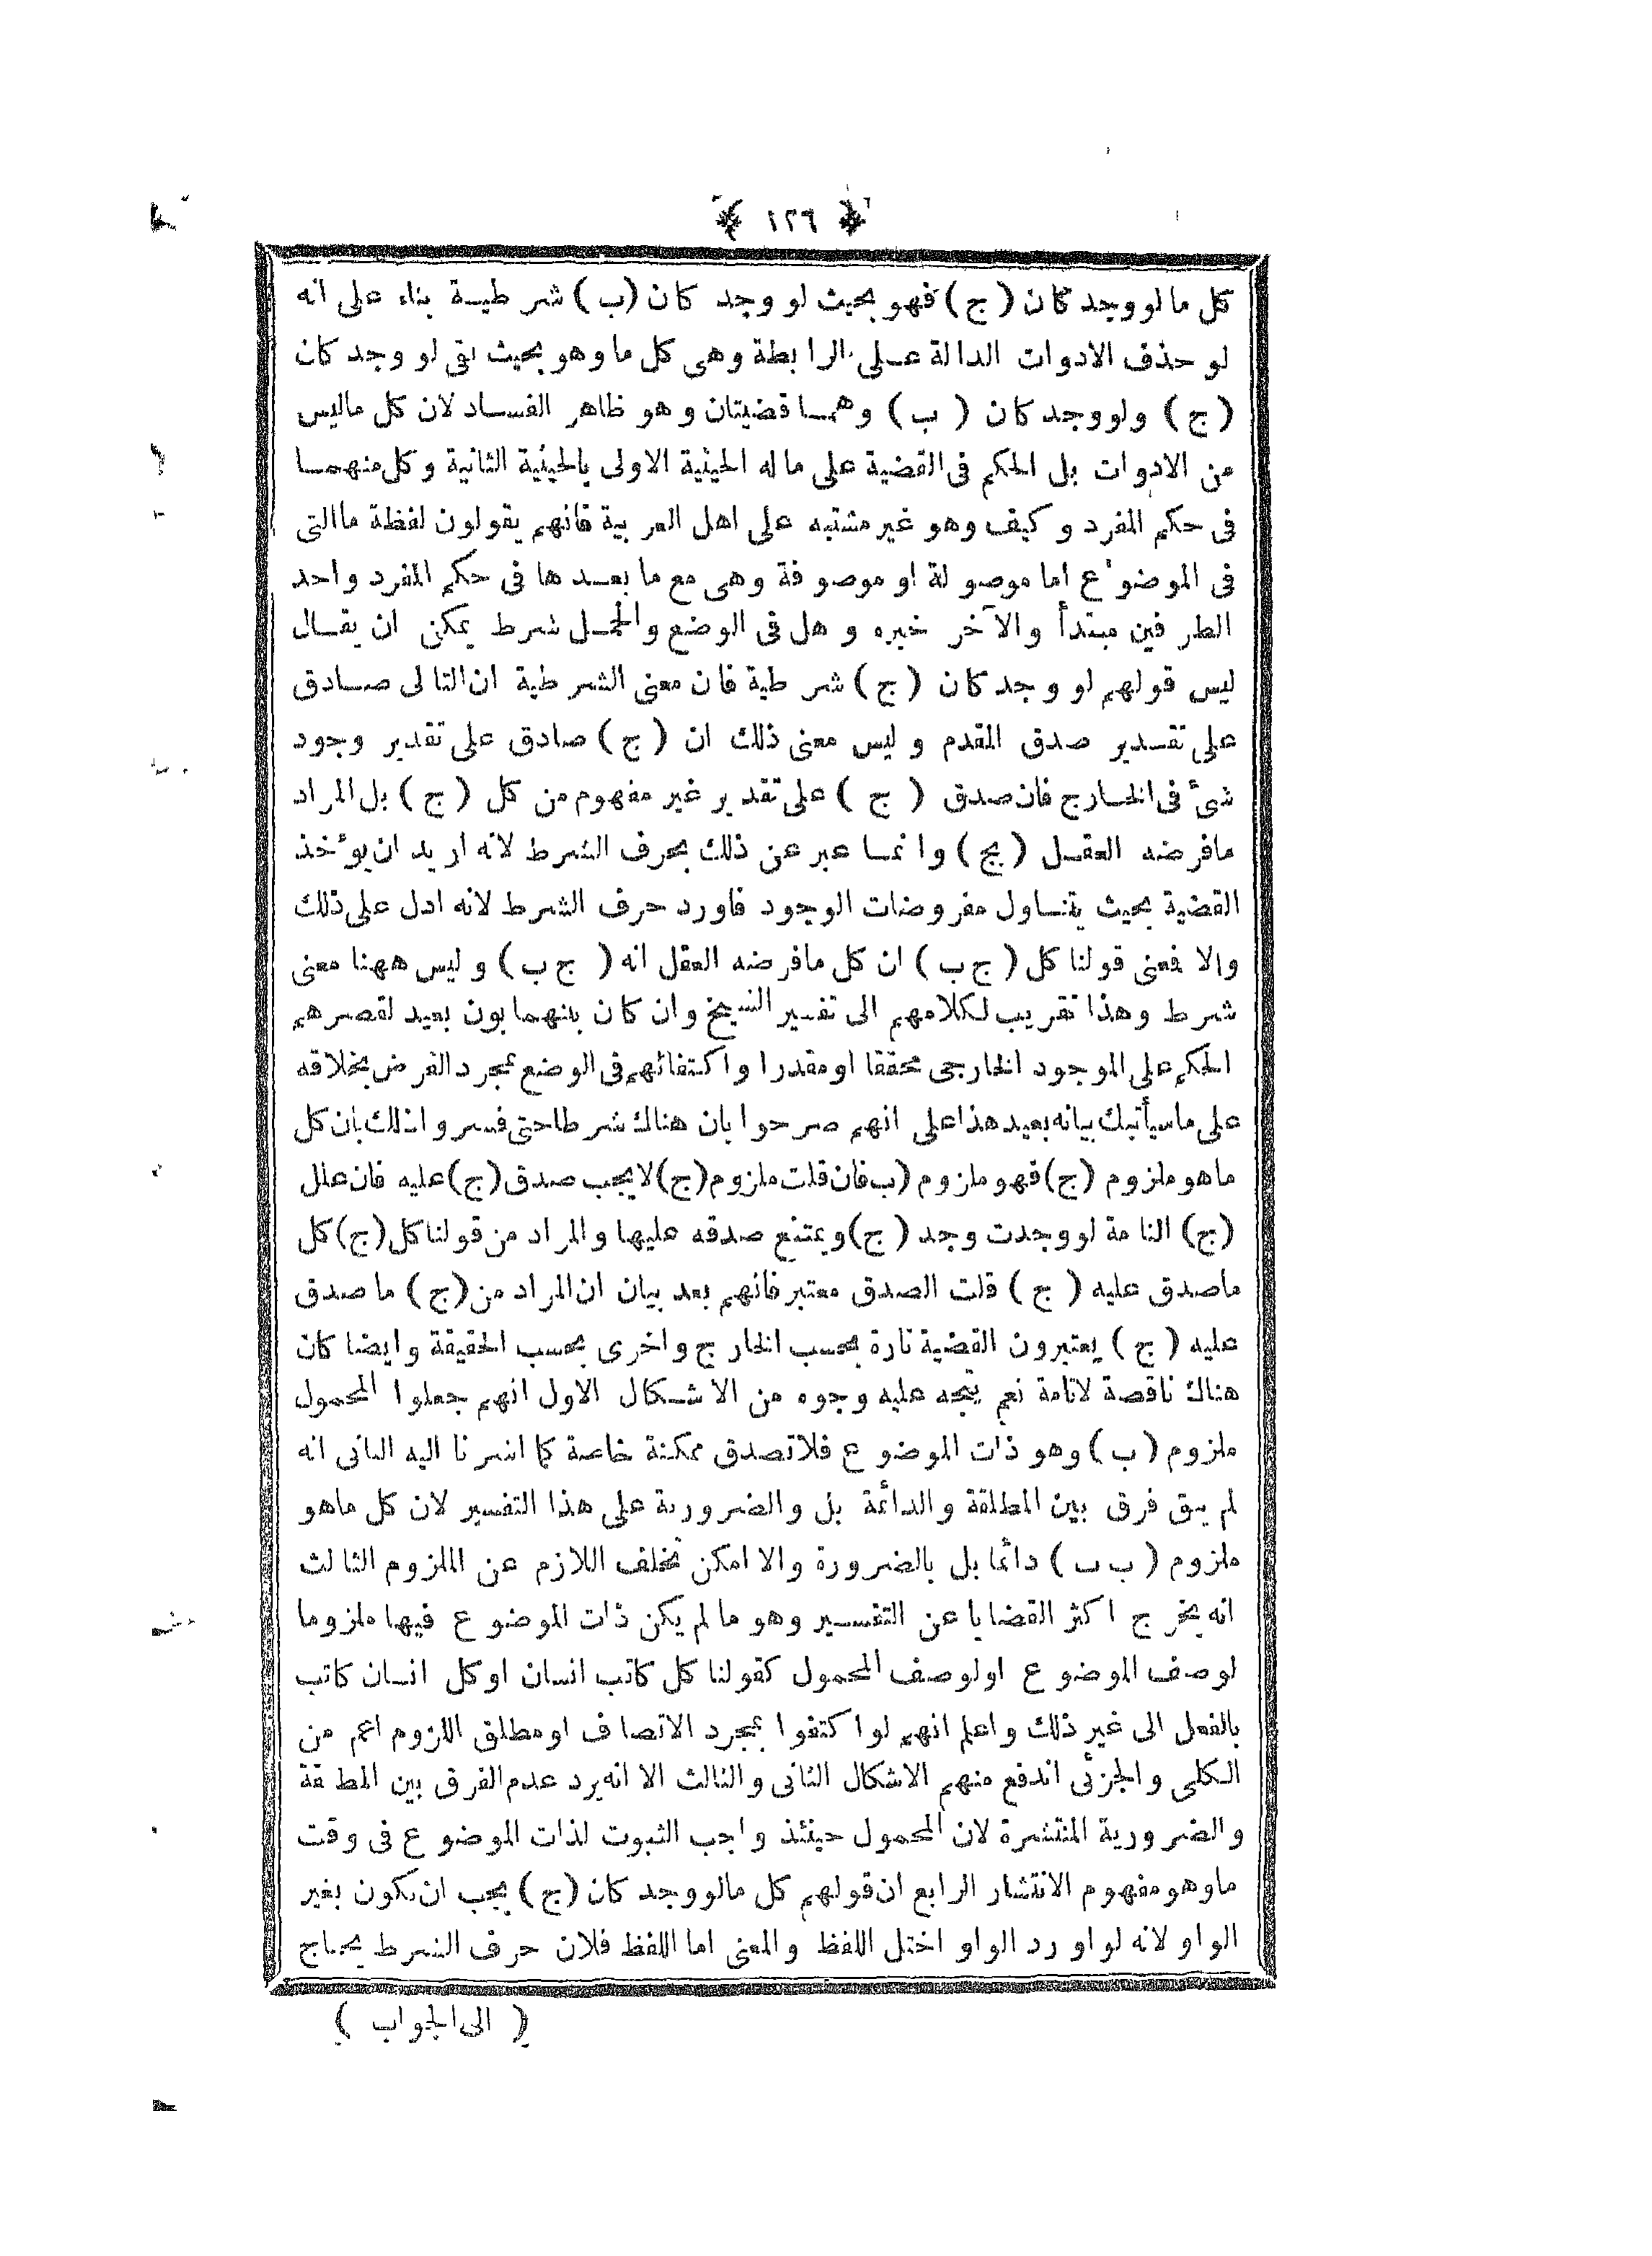 ١٢٦
كل مالو وجد كان (ج) فهو بحيث لو وجد كان (ب) شرطية بناء على انه
لو حذف الادوات الدالة على الرابطة وهى كل ما وهو بحيث بقى لو وجد كان
(ج) ولو وجد كان (ب) وهما قضيتان وهو ظاهر الفساد لان كل ماليس
من الادوات بل الحكم فى القضية على ماله الحيثية الاولى بالحيثية الثانية وكل منهما
فى حكم المفرد وكيف وهو غير مشتبه على اهل العربية فانهم يقولون لفظة ما التى
فى الموضوع اما موصولة او موصوفة وهى مع ما بعدها فى حكم المفرد واحد
الطرفين مبتدأ والآخر خبره وهل فى الوضع والحمل شرط يمكن ان يقال
ليس قولهم لو وجد كان (ج) شرطية فان معنى الشرطية ان التالى صادق
على تقدير صدق المقدم وليس معنى ذلك ان (ج) صادق على تقدير وجود
شئ فى الخارج فان صدق (ج) على تقدير غير مفهوم من كل (ج) بل المراد
مافرضه العقل (بج) وانما عبر عن ذلك بحرف الشرط لانه اريد ان يؤخذ
القضية بحيث يتناول مفروضات الوجود فاورد حرف الشرط لانه ادل على ذلك
والا فعنى قولنا كل (ج ب) ان كل مافرضه العقل انه (ج ب) وليس ههنا معنى
شرط وهذا تقريب لكلامهم الى تفسير الشيخ وان كان بينهما بون بعيد لقصرهم
الحكم على الموجود الخارجى محققا او مقدرا واكتفائهم فى الوضع بمجرد الفرض بخلافه
على ماسيأتيك بيانه بعيد هذا على انهم صرحوا بان هناك شرطا حتى فسروا ذلك بان كل
ماهو ملزوم (ج) فهو ملزوم (ب فان قلت ملزوم (ج) لا يجب صدق (ج) عليه فان علل
(ج) التامة لو وجدت وجد (ج) ويمتنع صدقه عليها والمراد من قولنا كل (ج) كل
ماصدق عليه (ج) قلت الصدق معتبر فانهم بعد بيان ان المراد من (ج) ما صدق
عليه (ج) يعتبرون القضية تارة بحسب الخارج واخرى بحسب الحقيقة وايضا كان
هناك ناقصة لاتامة نعم يتجه عليه وجوه من الاشكال الاول انهم جعلوا المحمول
ملزوم (ب) وهو ذات الموضوع فلا تصدق ممكنة خاصة كما اشرنا اليه الثانى انه
لم يبق فرق بين المطلقة والدائمة بل والضرورية على هذا التفسير لان كل ماهو
ملزوم (ب ب) دائما بل بالضرورة والا امكن تخلف اللازم عن الملزوم الثالث
انه يخرج اكثر القضايا عن التفسير وهو ما لم يكن ذات الموضوع فيها ملزوما
لوصف الموضوع اولوصف المحمول كقولنا كل كاتب انسان او كل انسان كاتب
بالفعل الى غير ذلك واعلم انهم لو اكتفوا بمجرد الاتصاف او مطلق اللزوم اعم من
الكلى والجزئى اندفع منهم الاشكال الثانى والثالث الا انه يرد عدم الفرق بين المطلقة
والضرورية المنتشرة لان المحمول حينئذ واجب الثبوت لذات الموضوع فى وقت
ما وهو مفهوم الانتشار الرابع ان قولهم كل مالو وجد كان (ج) يجب ان يكون بغير
الواو لانه لو اورد الواو اختل اللفظ والمعنى اما اللفظ فلان حرف الشرط يحتاج
( الى الجواب )